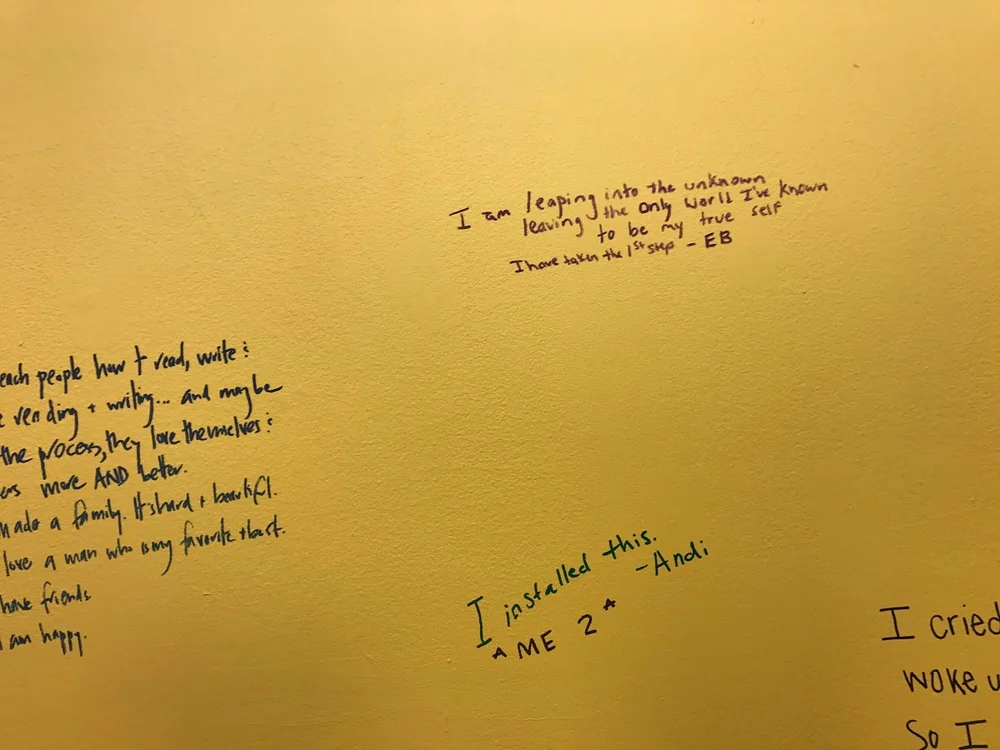 I am leaping into the unknown
leaving the Only World I've known
to be my true self
I have taken the 1st step - EB
each people how t read, write &
reading + writing... and maybe
the process, they love themselves &
more AND better.
made a family. It's hard + beautiful.
love a man who is my favorite + best.
have friends
am happy.
I installed this.
-Andi
^ ME 2 ^
I cried
woke u
So I